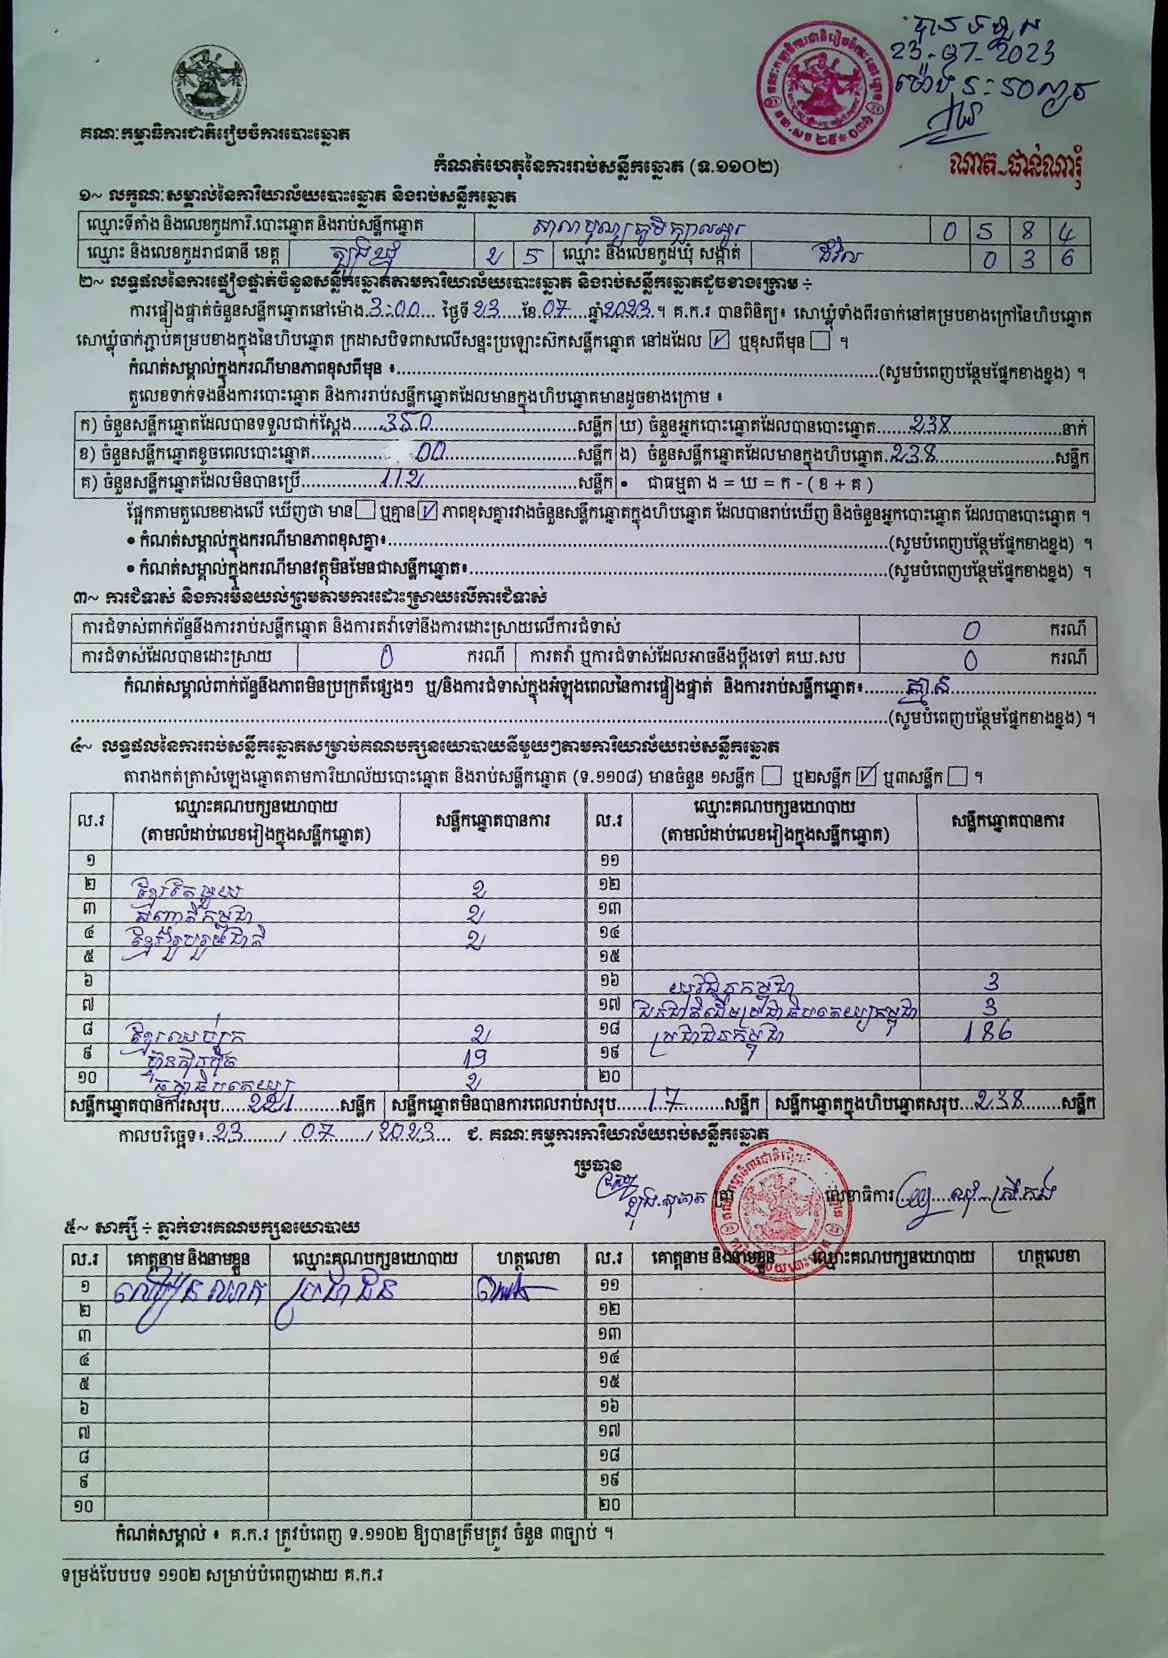 បានទទួល
23-07-2023
គណៈកម្មាធិការជាតិរៀបចំការបោះឆ្នោត
ណាត ផាន់ណារុំ
កំណត់ហេតុនៃការរាប់សន្លឹកឆ្នោត (ទ.១១០២)
១~ លក្ខណៈសម្គាល់នៃការិយាល័យបោះឆ្នោត និងរាប់សន្លឹកឆ្នោត
ឈ្មោះទីតាំង និងលេខកូដការិ.បោះឆ្នោត និងរាប់សន្លឹកឆ្នោត សាលាបុណ្យភូមិក្បាលអូរ 0 5 8 4
ឈ្មោះ និងលេខកូដរាជធានី ខេត្ត ត្បូងឃ្មុំ ២ 5 ឈ្មោះ និងលេខកូដឃុំ សង្កាត់ ជីវិល 0 3 6
២~ លទ្ធផលនៃការផ្ទៀងផ្ទាត់ចំនួនសន្លឹកឆ្នោតតាមការិយាល័យបោះឆ្នោត និងរាប់សន្លឹកឆ្នោតដូចខាងក្រោម ÷
ការផ្ទៀងផ្ទាត់ចំនួនសន្លឹកឆ្នោតនៅម៉ោង 3:00 ថ្ងៃទី 23 ខែ 07 ឆ្នាំ 2023 ។ គ.ក.រ បានពិនិត្យ៖ សោឃ្លុំទាំងពីរចាក់នៅគម្របខាងក្រៅនៃហិបឆ្នោត
សោឃ្លុំចាក់ភ្ជាប់គម្របខាងក្នុងនៃហិបឆ្នោត ក្រដាសបិទពាសលើសន្ទះប្រឡោះស៊កសន្លឹកឆ្នោត នៅដដែល ☑ ឬខុសពីមុន ☐ ។
កំណត់សម្គាល់ក្នុងករណីមានភាពខុសពីមុន ៖ (សូមបំពេញបន្ថែមផ្នែកខាងខ្នង) ។
តួលេខទាក់ទងនឹងការបោះឆ្នោត និងការរាប់សន្លឹកឆ្នោតដែលមានក្នុងហិបឆ្នោតមានដូចខាងក្រោម ៖
ក) ចំនួនសន្លឹកឆ្នោតដែលបានទទួលជាក់ស្តែង 350 សន្លឹក ឃ) ចំនួនអ្នកបោះឆ្នោតដែលបានបោះឆ្នោត 238 នាក់
ខ) ចំនួនសន្លឹកឆ្នោតខូចពេលបោះឆ្នោត 00 សន្លឹក ង) ចំនួនសន្លឹកឆ្នោតដែលមានក្នុងហិបឆ្នោត 238 សន្លឹក
គ) ចំនួនសន្លឹកឆ្នោតដែលមិនបានប្រើ 11២ សន្លឹក • ជាធម្មតា ង = ឃ = ក - ( ខ + គ )
ផ្អែកតាមតួលេខខាងលើ ឃើញថា មាន ☐ ឬគ្មាន ☑ ភាពខុសគ្នារវាងចំនួនសន្លឹកឆ្នោតក្នុងហិបឆ្នោត ដែលបានរាប់ឃើញ និងចំនួនអ្នកបោះឆ្នោត ដែលបានបោះឆ្នោត ។
• កំណត់សម្គាល់ក្នុងករណីមានភាពខុសគ្នា៖ (សូមបំពេញបន្ថែមផ្នែកខាងខ្នង) ។
• កំណត់សម្គាល់ក្នុងករណីមានវត្ថុមិនមែនជាសន្លឹកឆ្នោត៖ (សូមបំពេញបន្ថែមផ្នែកខាងខ្នង) ។
៣~ ការជំទាស់ និងការមិនយល់ព្រមតាមការដោះស្រាយលើការជំទាស់
ការជំទាស់ពាក់ព័ន្ធនឹងការរាប់សន្លឹកឆ្នោត និងការតវ៉ាទៅនឹងការដោះស្រាយលើការជំទាស់ 0 ករណី
ការជំទាស់ដែលបានដោះស្រាយ 0 ករណី ការតវ៉ា ឬការជំទាស់ដែលអាចនឹងប្តឹងទៅ គឃ.សប 0 ករណី
កំណត់សម្គាល់ពាក់ព័ន្ធនឹងភាពមិនប្រក្រតីផ្សេងៗ ឬ/និងការជំទាស់ក្នុងអំឡុងពេលនៃការផ្ទៀងផ្ទាត់ និងការរាប់សន្លឹកឆ្នោត៖ គ្មាន
(សូមបំពេញបន្ថែមផ្នែកខាងខ្នង) ។
៤~ លទ្ធផលនៃការរាប់សន្លឹកឆ្នោតសម្រាប់គណបក្សនយោបាយនីមួយៗតាមការិយាល័យរាប់សន្លឹកឆ្នោត
តារាងកត់ត្រាសំឡេងឆ្នោតតាមការិយាល័យបោះឆ្នោត និងរាប់សន្លឹកឆ្នោត (ទ.១១០៨) មានចំនួន ១សន្លឹក ☐ ឬ២សន្លឹក ☑ ឬ៣សន្លឹក ☐ ។
ល.រ ឈ្មោះគណបក្សនយោបាយ (តាមលំដាប់លេខរៀងក្នុងសន្លឹកឆ្នោត) សន្លឹកឆ្នោតបានការ ល.រ ឈ្មោះគណបក្សនយោបាយ (តាមលំដាប់លេខរៀងក្នុងសន្លឹកឆ្នោត) សន្លឹកឆ្នោតបានការ
១ ១១
២ ខ្មែរតែមួយ ២ ១២
៣ សញ្ជាតិកម្ពុជា ២ ១៣
៤ ខ្មែររួបរួមជាតិ ២ ១៤
៥ ១៥
៦ ១៦ យុវជនកម្ពុជា 3
៧ ១៧ ជនជាតិដើមប្រជាធិបតេយ្យកម្ពុជា 3
៨ ខ្មែរឈប់ក្រ ២ ១៨ ប្រជាជនកម្ពុជា 186
៩ ហ្វ៊ុនស៊ិនប៉ិច 19 ១៩
១០ ធម្មាធិបតេយ្យ ២ ២០
សន្លឹកឆ្នោតបានការសរុប 221 សន្លឹក សន្លឹកឆ្នោតមិនបានការពេលរាប់សរុប 17 សន្លឹក សន្លឹកឆ្នោតក្នុងហិបឆ្នោតសរុប 238 សន្លឹក
កាលបរិច្ឆេទ៖ 23 / 07 / 2023 ជ. គណៈកម្មការការិយាល័យរាប់សន្លឹកឆ្នោត
ប្រធាន
លេខាធិការ
៥~ សាក្សី ÷ ភ្នាក់ងារគណបក្សនយោបាយ
ល.រ គោត្តនាម និងនាមខ្លួន ឈ្មោះគណបក្សនយោបាយ ហត្ថលេខា ល.រ គោត្តនាម និងនាមខ្លួន ឈ្មោះគណបក្សនយោបាយ ហត្ថលេខា
១ ប្រជាជន ១១
២ ១២
៣ ១៣
៤ ១៤
៥ ១៥
៦ ១៦
៧ ១៧
៨ ១៨
៩ ១៩
១០ ២០
កំណត់សម្គាល់ ៖ គ.ក.រ ត្រូវបំពេញ ទ.១១០២ ឱ្យបានត្រឹមត្រូវ ចំនួន ៣ច្បាប់ ។
ទម្រង់បែបបទ ១១០២ សម្រាប់បំពេញដោយ គ.ក.រ